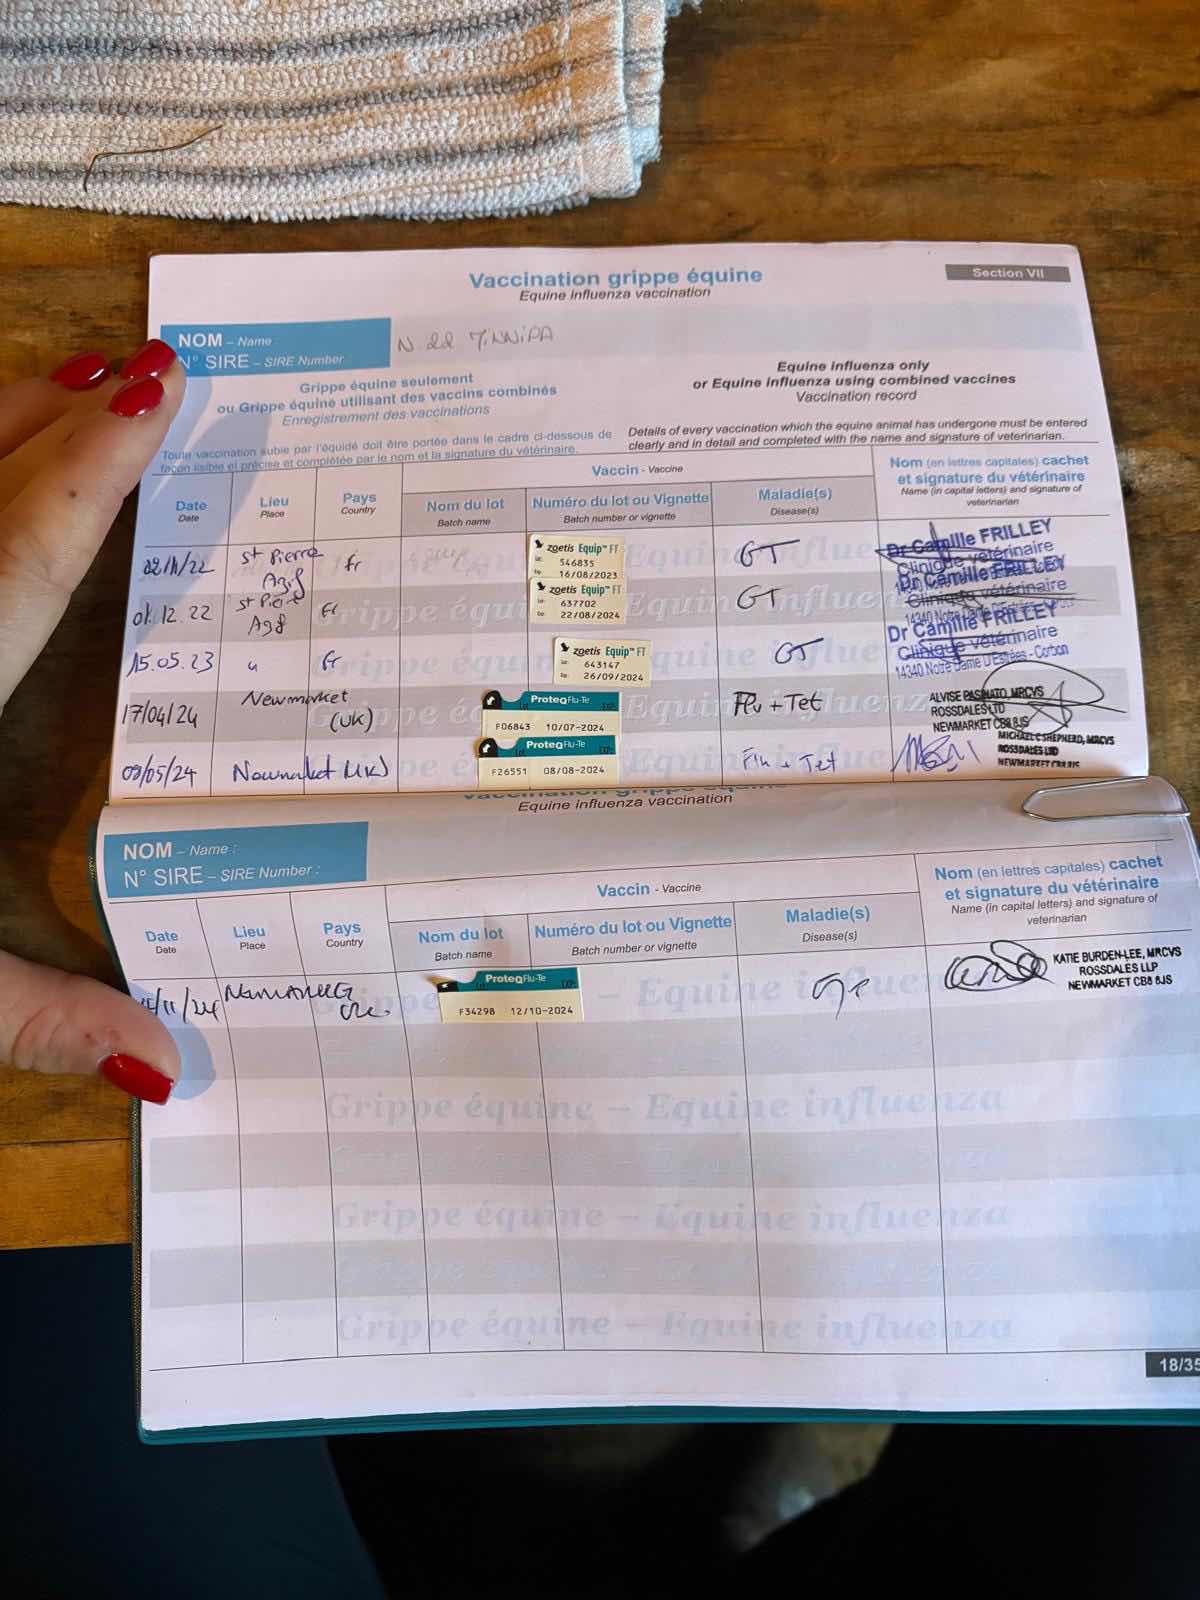 Vaccination grippe équine
Equine influenza vaccination
Section VII
NOM – Name :
N° SIRE – SIRE Number
Grippe équine seulement
ou Grippe équine utilisant des vaccins combinés
Enregistrement des vaccinations
Equine influenza only
or Equine influenza using combined vaccines
Vaccination record
Toute vaccination subie par l'équidé doit être portée dans le cadre ci-dessous de
façon lisible et précise et complétée par le nom et la signature du vétérinaire.
Details of every vaccination which the equine animal has undergone must be entered
clearly and in detail and completed with the name and signature of veterinarian.
Date
Date
Lieu
Place
Pays
Country
Vaccin - Vaccine
Nom du lot
Batch name
Numéro du lot ou Vignette
Batch number or vignette
Maladie(s)
Disease(s)
Nom (en lettres capitales) cachet
et signature du vétérinaire
Name (in capital letters) and signature of
veterinarian
22/11/22 St Pierre Fr zoetis Equip FT 546835 16/08/2023 GT Dr Camille FRILLEY Clinique vétérinaire
01.12.22 St Pierre Fr zoetis Equip FT 637702 22/08/2024 GT Dr Camille FRILLEY Clinique vétérinaire
15.05.23 " Fr zoetis Equip FT 643147 26/09/2024 GT Dr Camille FRILLEY Clinique vétérinaire 14340 Notre Dame D'Estrées - Corbon
17/04/24 Newmarket (UK) ProteqFlu-Te F06843 10/07-2024 Flu + Tet ALVISE MRCVS ROSSDALES LTD NEWMARKET CB8 8JS
09/05/24 Newmarket (UK) ProteqFlu-Te F26551 08/08-2024 Flu + Tet MICHAEL C SHEPHERD, MRCVS ROSSDALES LTD NEWMARKET CB8 8JS
Equine influenza vaccination
NOM – Name :
N° SIRE – SIRE Number :
Date
Date
Lieu
Place
Pays
Country
Vaccin - Vaccine
Nom du lot
Batch name
Numéro du lot ou Vignette
Batch number or vignette
Maladie(s)
Disease(s)
Nom (en lettres capitales) cachet
et signature du vétérinaire
Name (in capital letters) and signature of
veterinarian
/11/24 ProteqFlu-Te F34298 12/10-2024 KATIE BURDEN-LEE, MRCVS ROSSDALES LLP NEWMARKET CB8 8JS
Grippe équine – Equine influenza
Grippe équine – Equine influenza
Grippe équine – Equine influenza
18/35